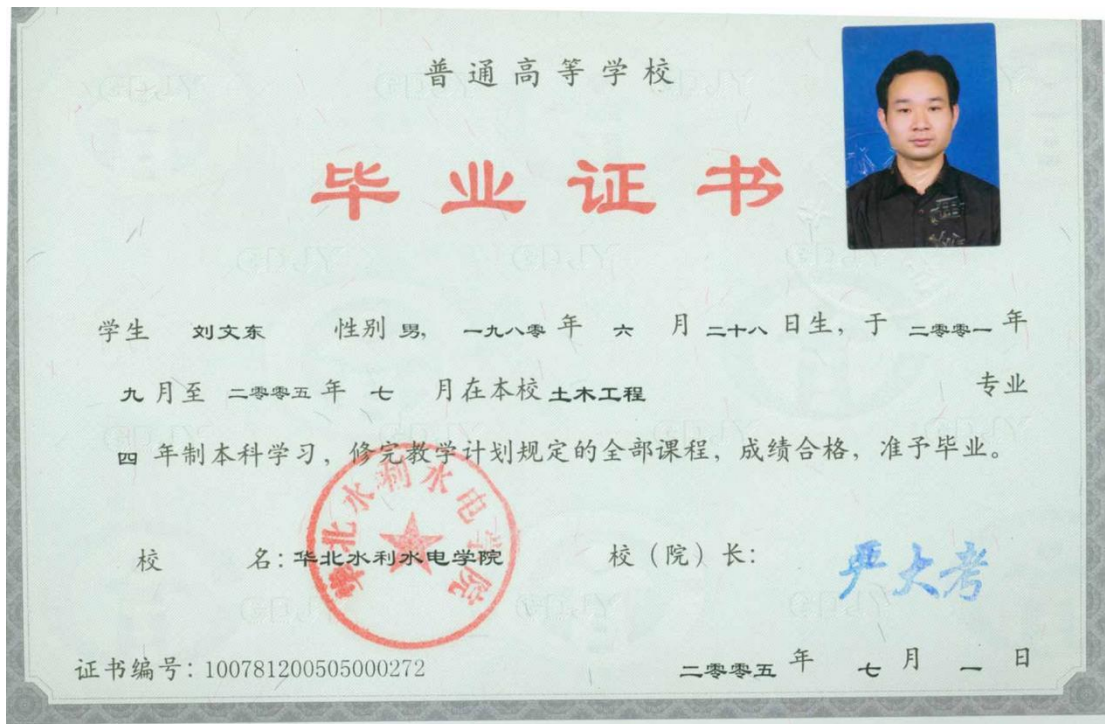 普通高等学校
毕业证书
学生 刘文东 性别 男, 一九八零 年 六 月 二十八 日生, 于 二零零一 年
九 月至 二零零五 年 七 月在本校 土木工程 专业
四 年制本科学习, 修完教学计划规定的全部课程, 成绩合格, 准予毕业。
校 名: 华北水利水电学院 校（院）长: 严大考
华北水利水电学院
证书编号: 100781200505000272 二零零五 年 七 月 一 日